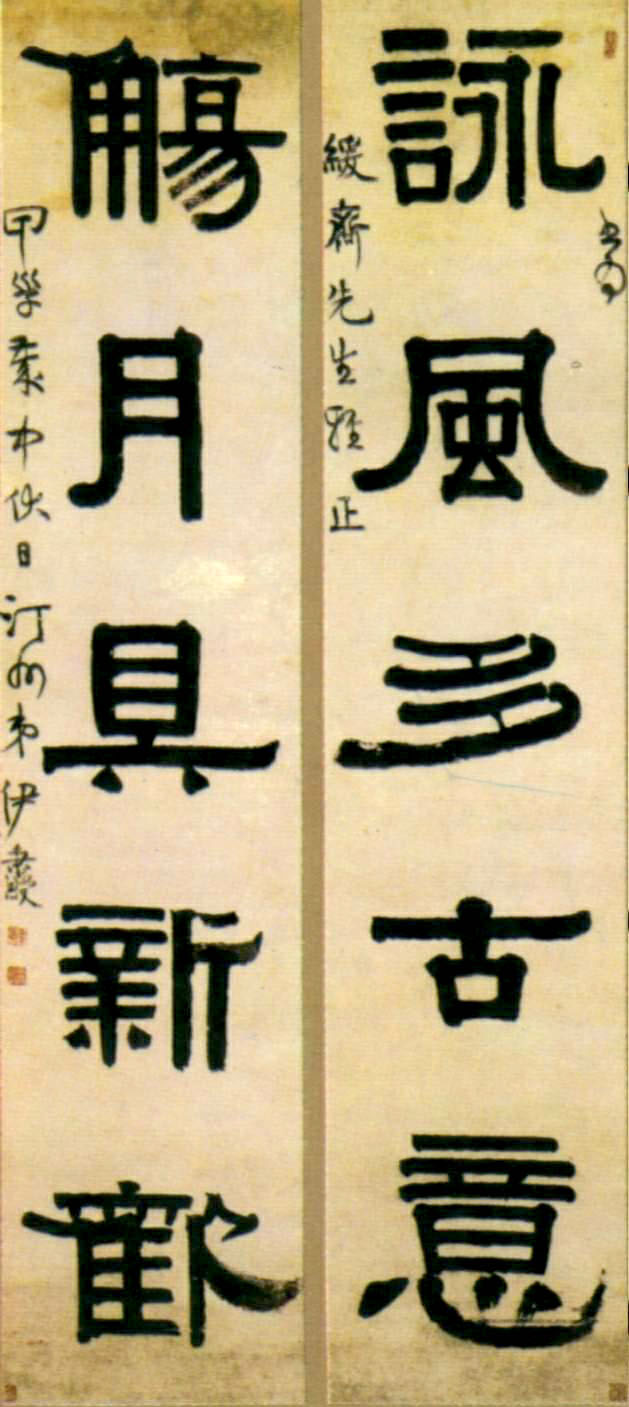 詠風多古意
書為
緩齋先生雅正
觴月具新歡
甲歲中伏日汀州弟伊秉綬